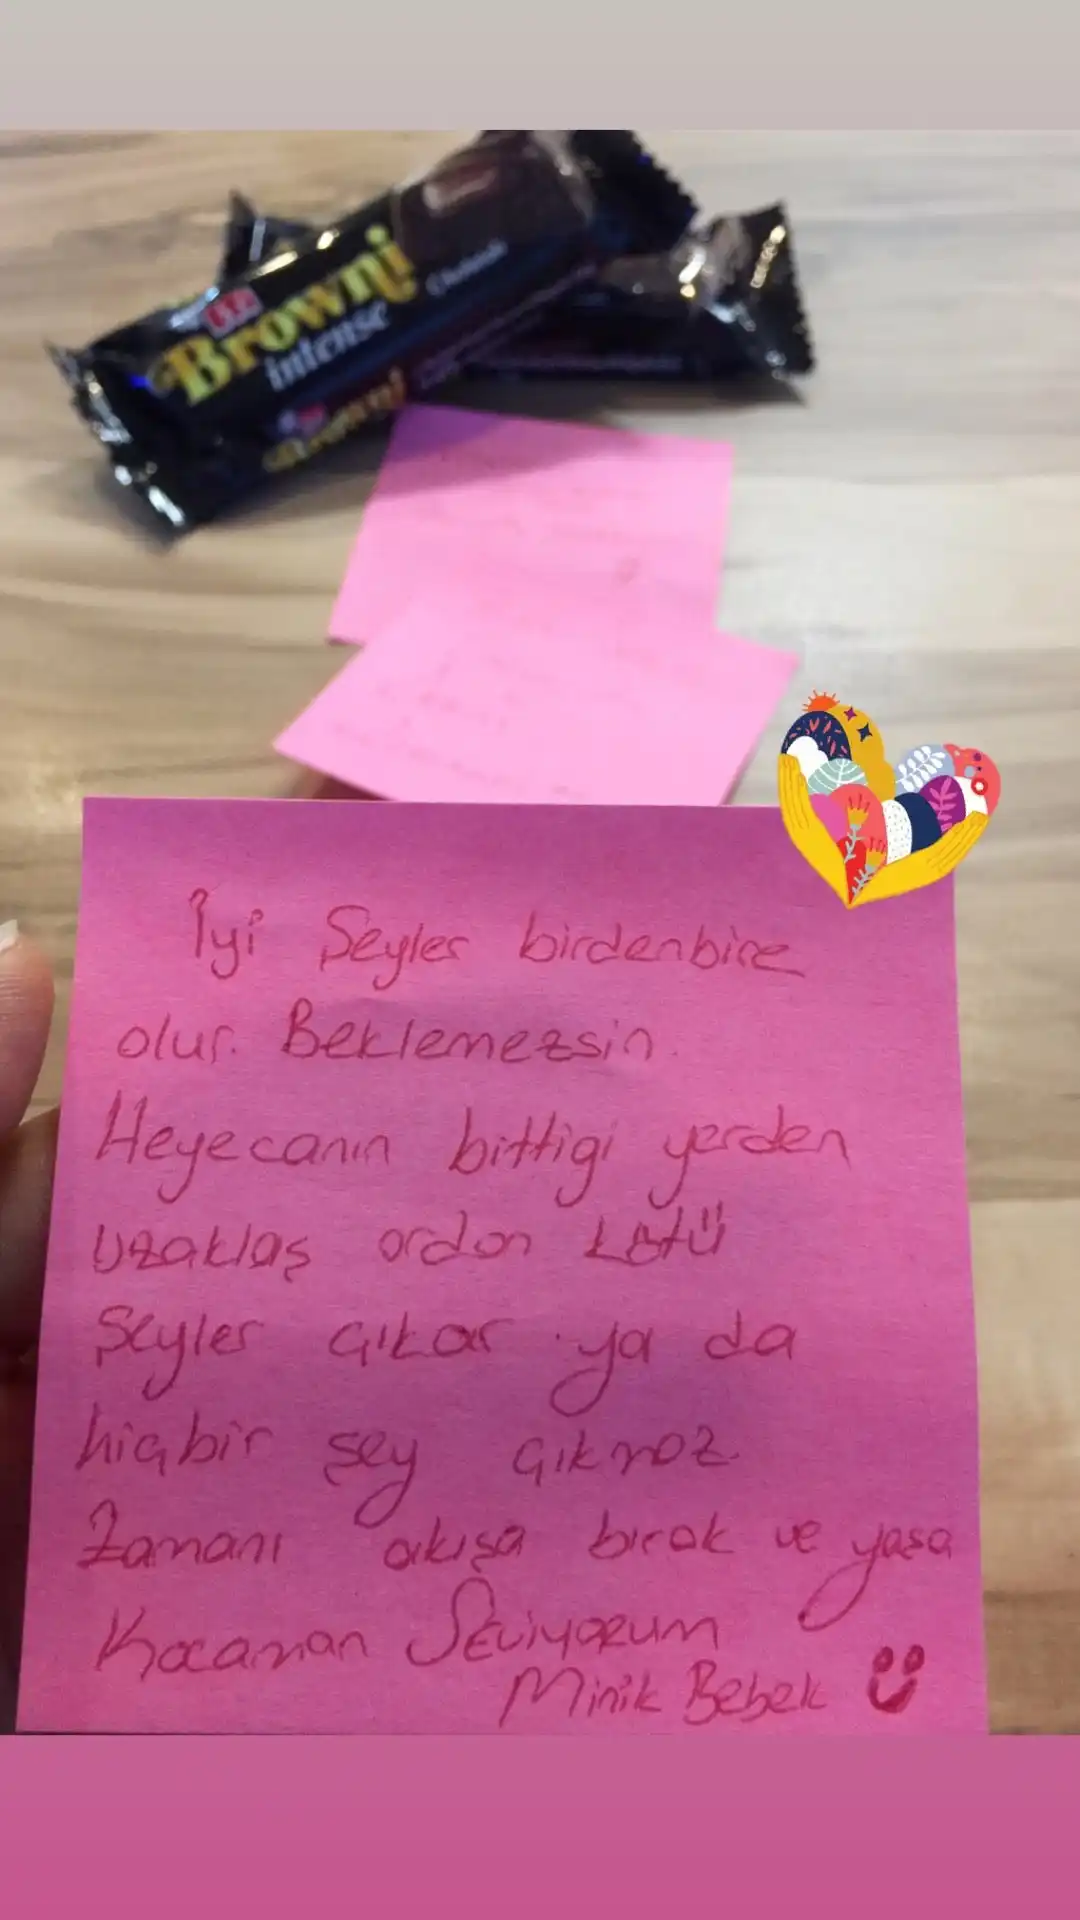 ETİ
Browni
intense
Browni
İyi Şeyler birdenbire
olur. Beklemezsin.
Heyecanın bittigi yerden
uzaklaş ordan kötü
Şeyler çıkar ya da
hiçbir şey çıkmaz.
Zamanı akışa bırak ve yaşa
Kocaman Seviyorum
Minik Bebek